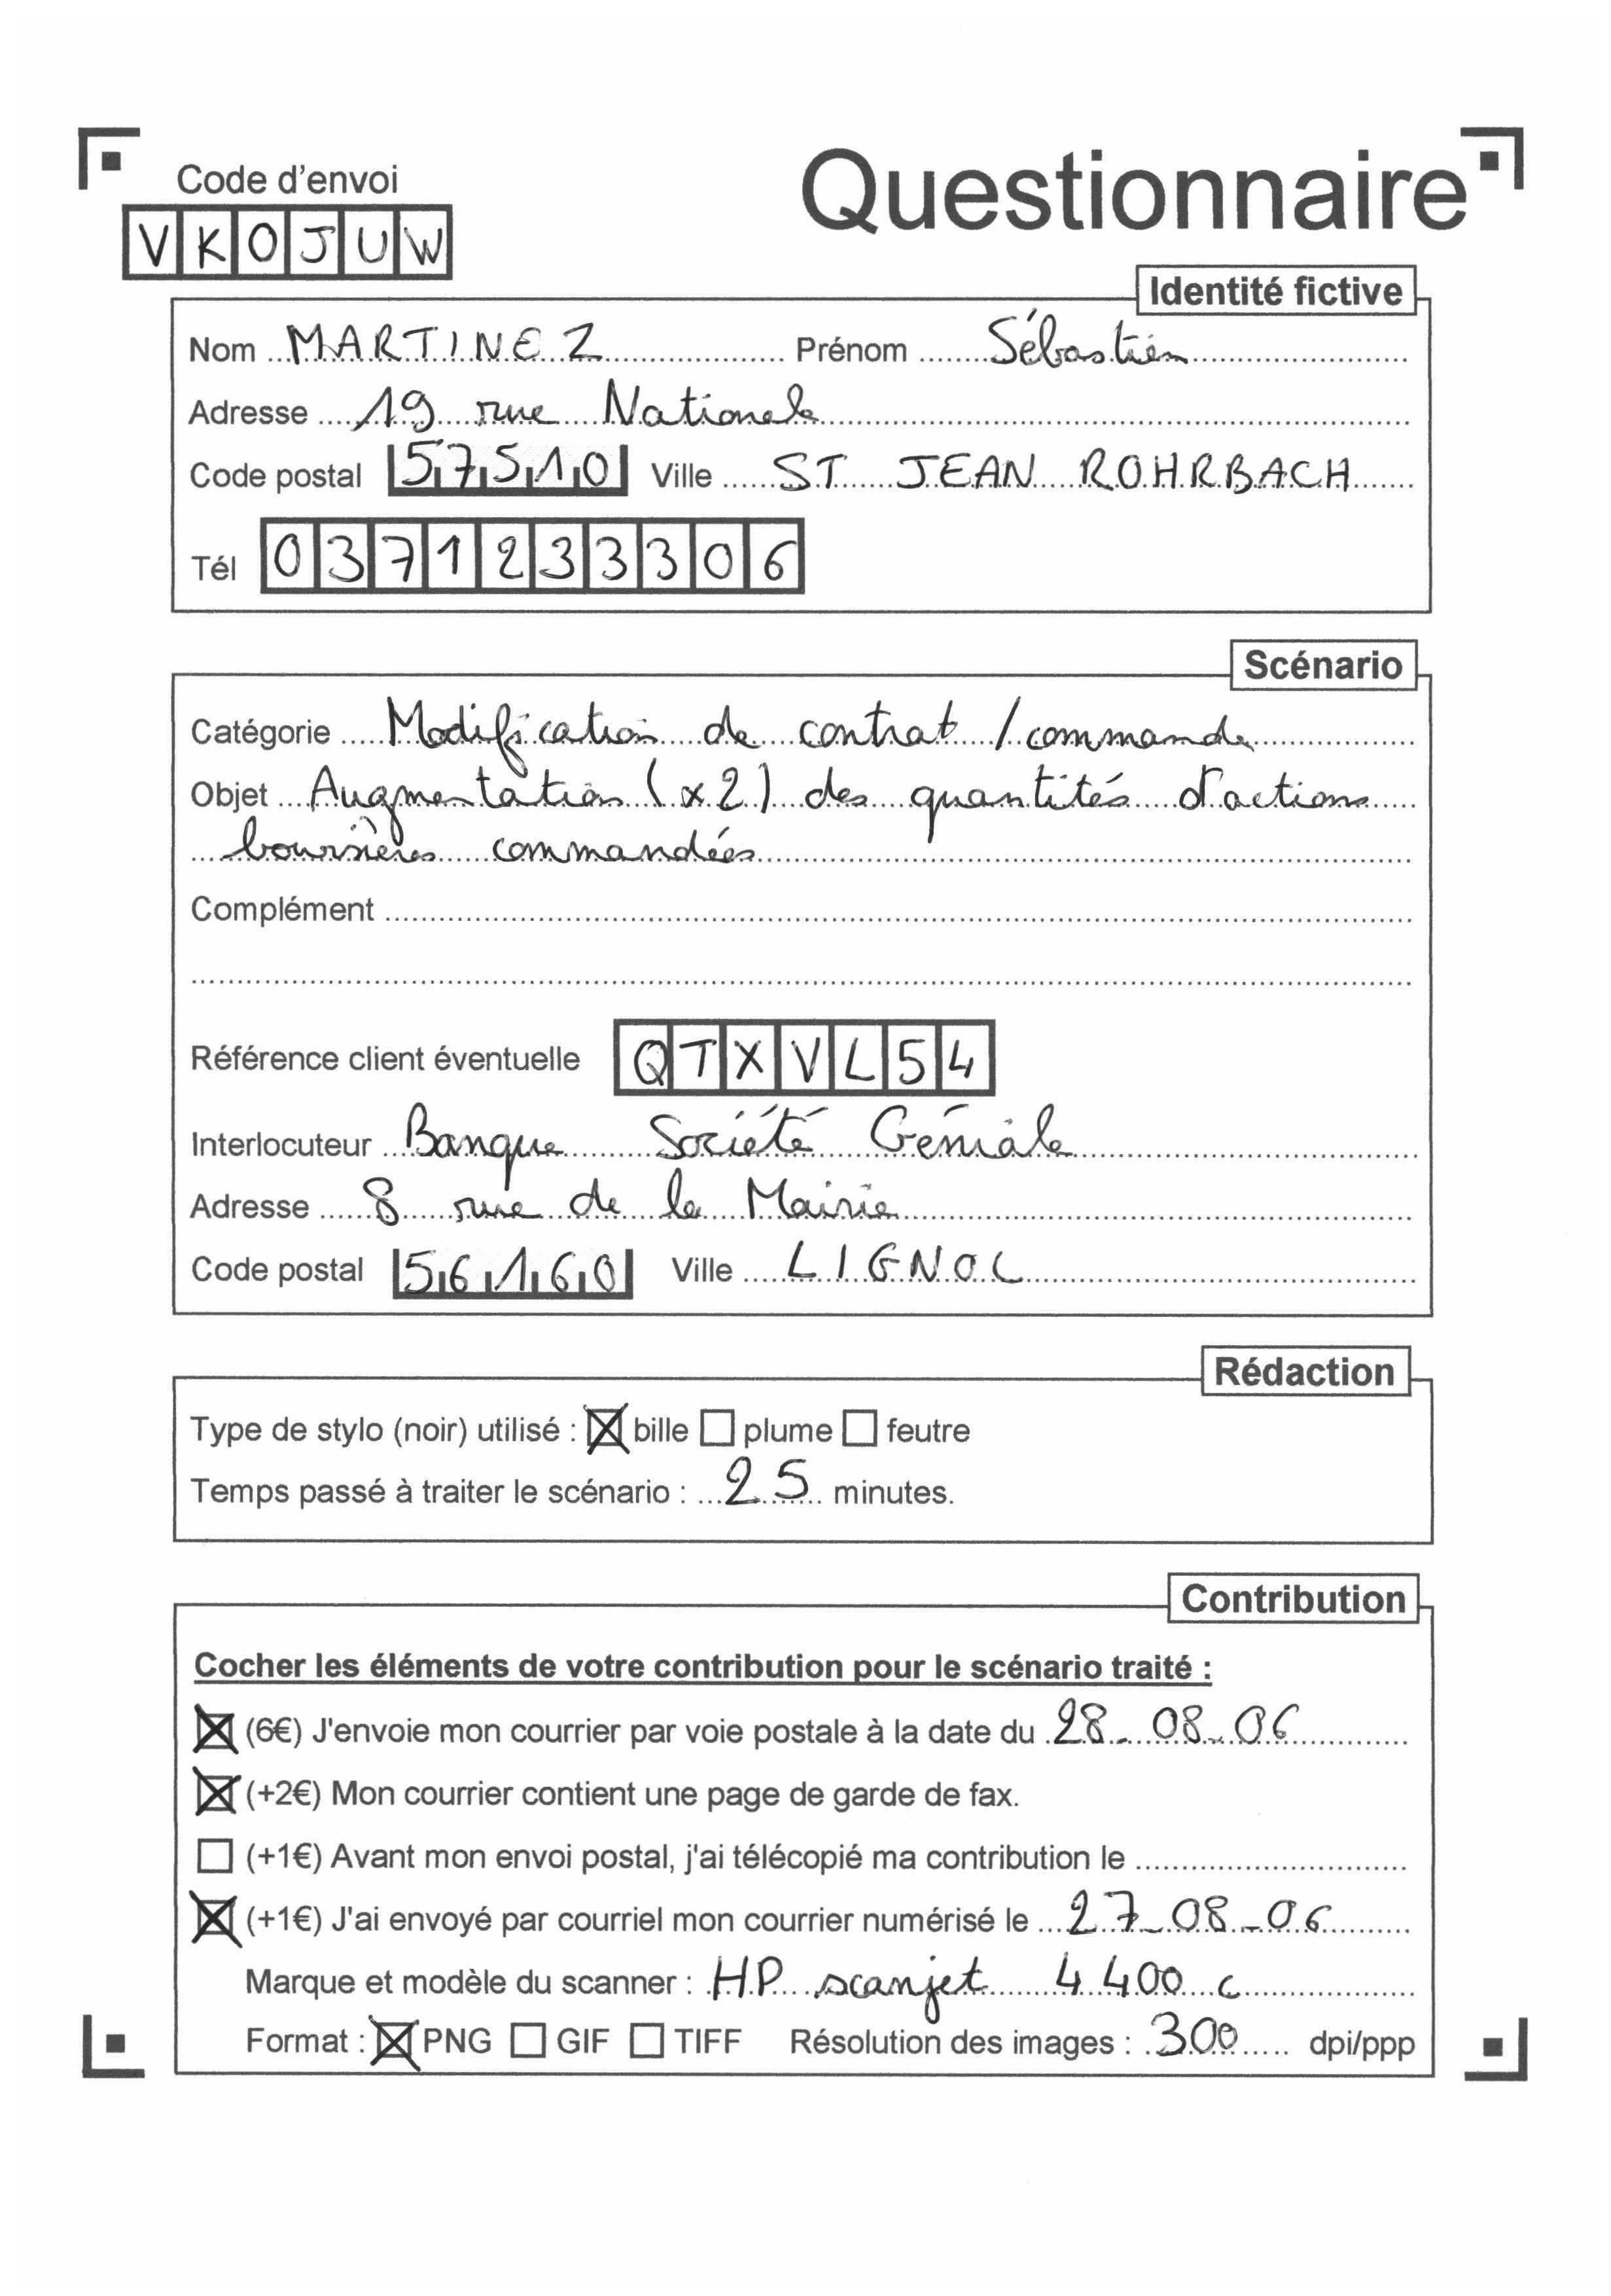 Code d'envoi
Questionnaire
VKOJUW
Identité fictive
Nom MARTINEZ Prénom Sébastien
Adresse 19 rue Nationale
Code postal 57510 Ville ST JEAN ROHRBACH
Tél 0371233306
Scénario
Catégorie Modification de contrat / commande
Objet Augmentation (x2) des quantités d'actions
boursières commandées
Complément
Référence client éventuelle QTXVL54
Interlocuteur Banque Société Géniale
Adresse 8 rue de la Mairie
Code postal 56160 Ville LIGNOL
Rédaction
Type de stylo (noir) utilisé : ☒ bille ☐ plume ☐ feutre
Temps passé à traiter le scénario : 25 minutes.
Contribution
Cocher les éléments de votre contribution pour le scénario traité :
☒ (6€) J'envoie mon courrier par voie postale à la date du 28-08-06
☒ (+2€) Mon courrier contient une page de garde de fax.
☐ (+1€) Avant mon envoi postal, j'ai télécopié ma contribution le
☒ (+1€) J'ai envoyé par courriel mon courrier numérisé le 27-08-06
Marque et modèle du scanner : HP scanjet 4400 c
Format : ☒ PNG ☐ GIF ☐ TIFF Résolution des images : 300 dpi/ppp